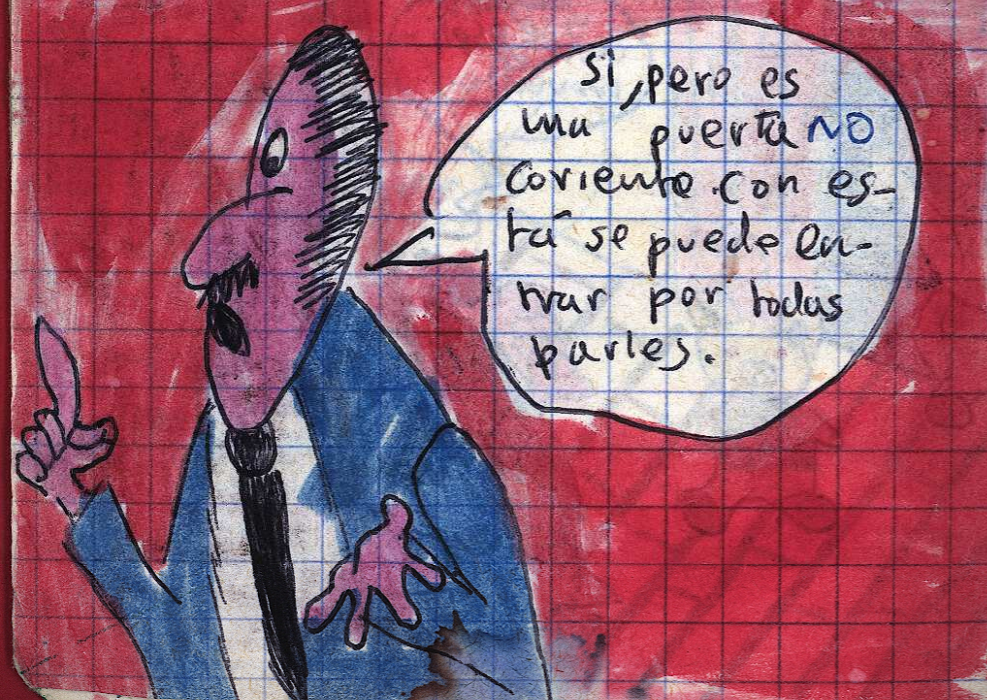 Si, pero es
una puerta NO
coriente. con es-
tá se puede en-
trar por todas
partes.